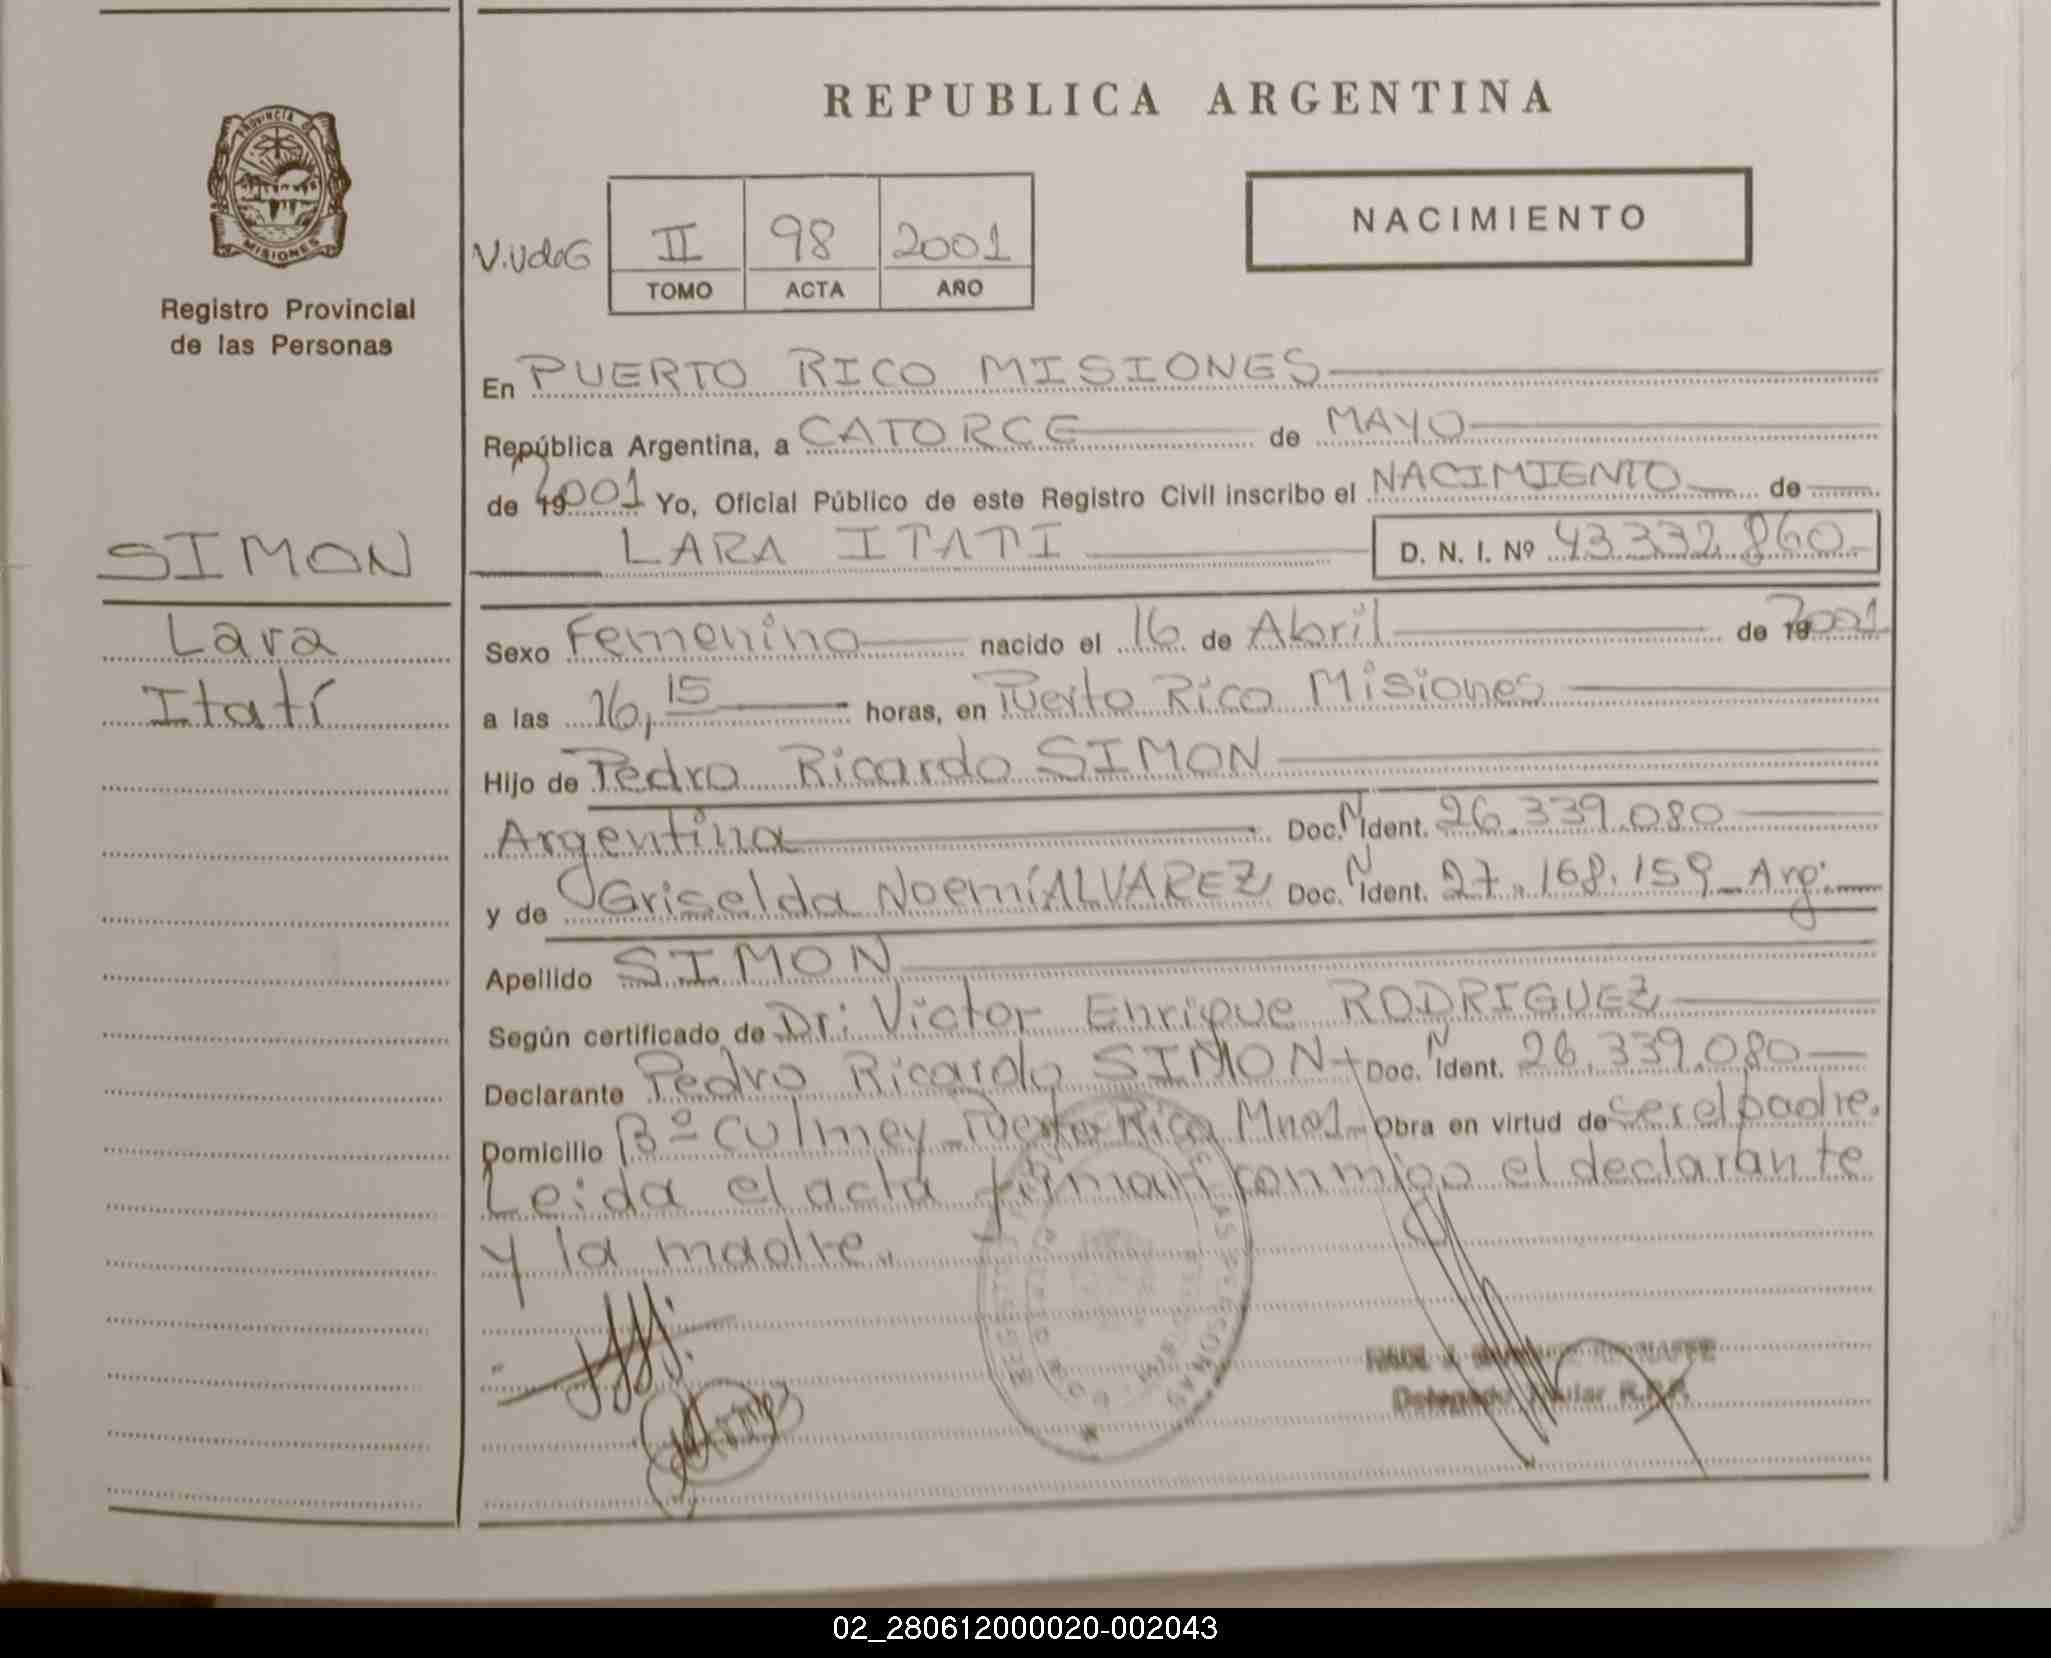 REPUBLICA ARGENTINA
PROVINCIA DE
MISIONES
Registro Provincial
de las Personas
NACIMIENTO
II 98 2001
TOMO ACTA AÑO
En PUERTO RICO MISIONES
República Argentina, a CATORCE de MAYO
de 19 2001 Yo, Oficial Público de este Registro Civil inscribo el NACIMIENTO de
LARA ITATI D. N. I. Nº 43.332.860
SIMON
Lara
Itatí
Sexo Femenino nacido el 16 de Abril de 19 2001
a las 16,15 horas, en Puerto Rico Misiones
Hijo de Pedro Ricardo SIMON
Argentina Doc. N Ident. 26.339.080
y de Griselda Noemí ALVAREZ Doc. N Ident. 27.168.159 Arg.
Apellido SIMON
Según certificado de Dr: Victor Enrique RODRIGUEZ
Declarante Pedro Ricardo SIMON Doc. N Ident. 26.339.080
Domicilio Bº Culmey Puerto Rico Mnes Obra en virtud de ser el padre.
Leida el acta firman conmigo el declarante
y la madre.
Delegado Titular R.P.P.
02_280612000020-002043